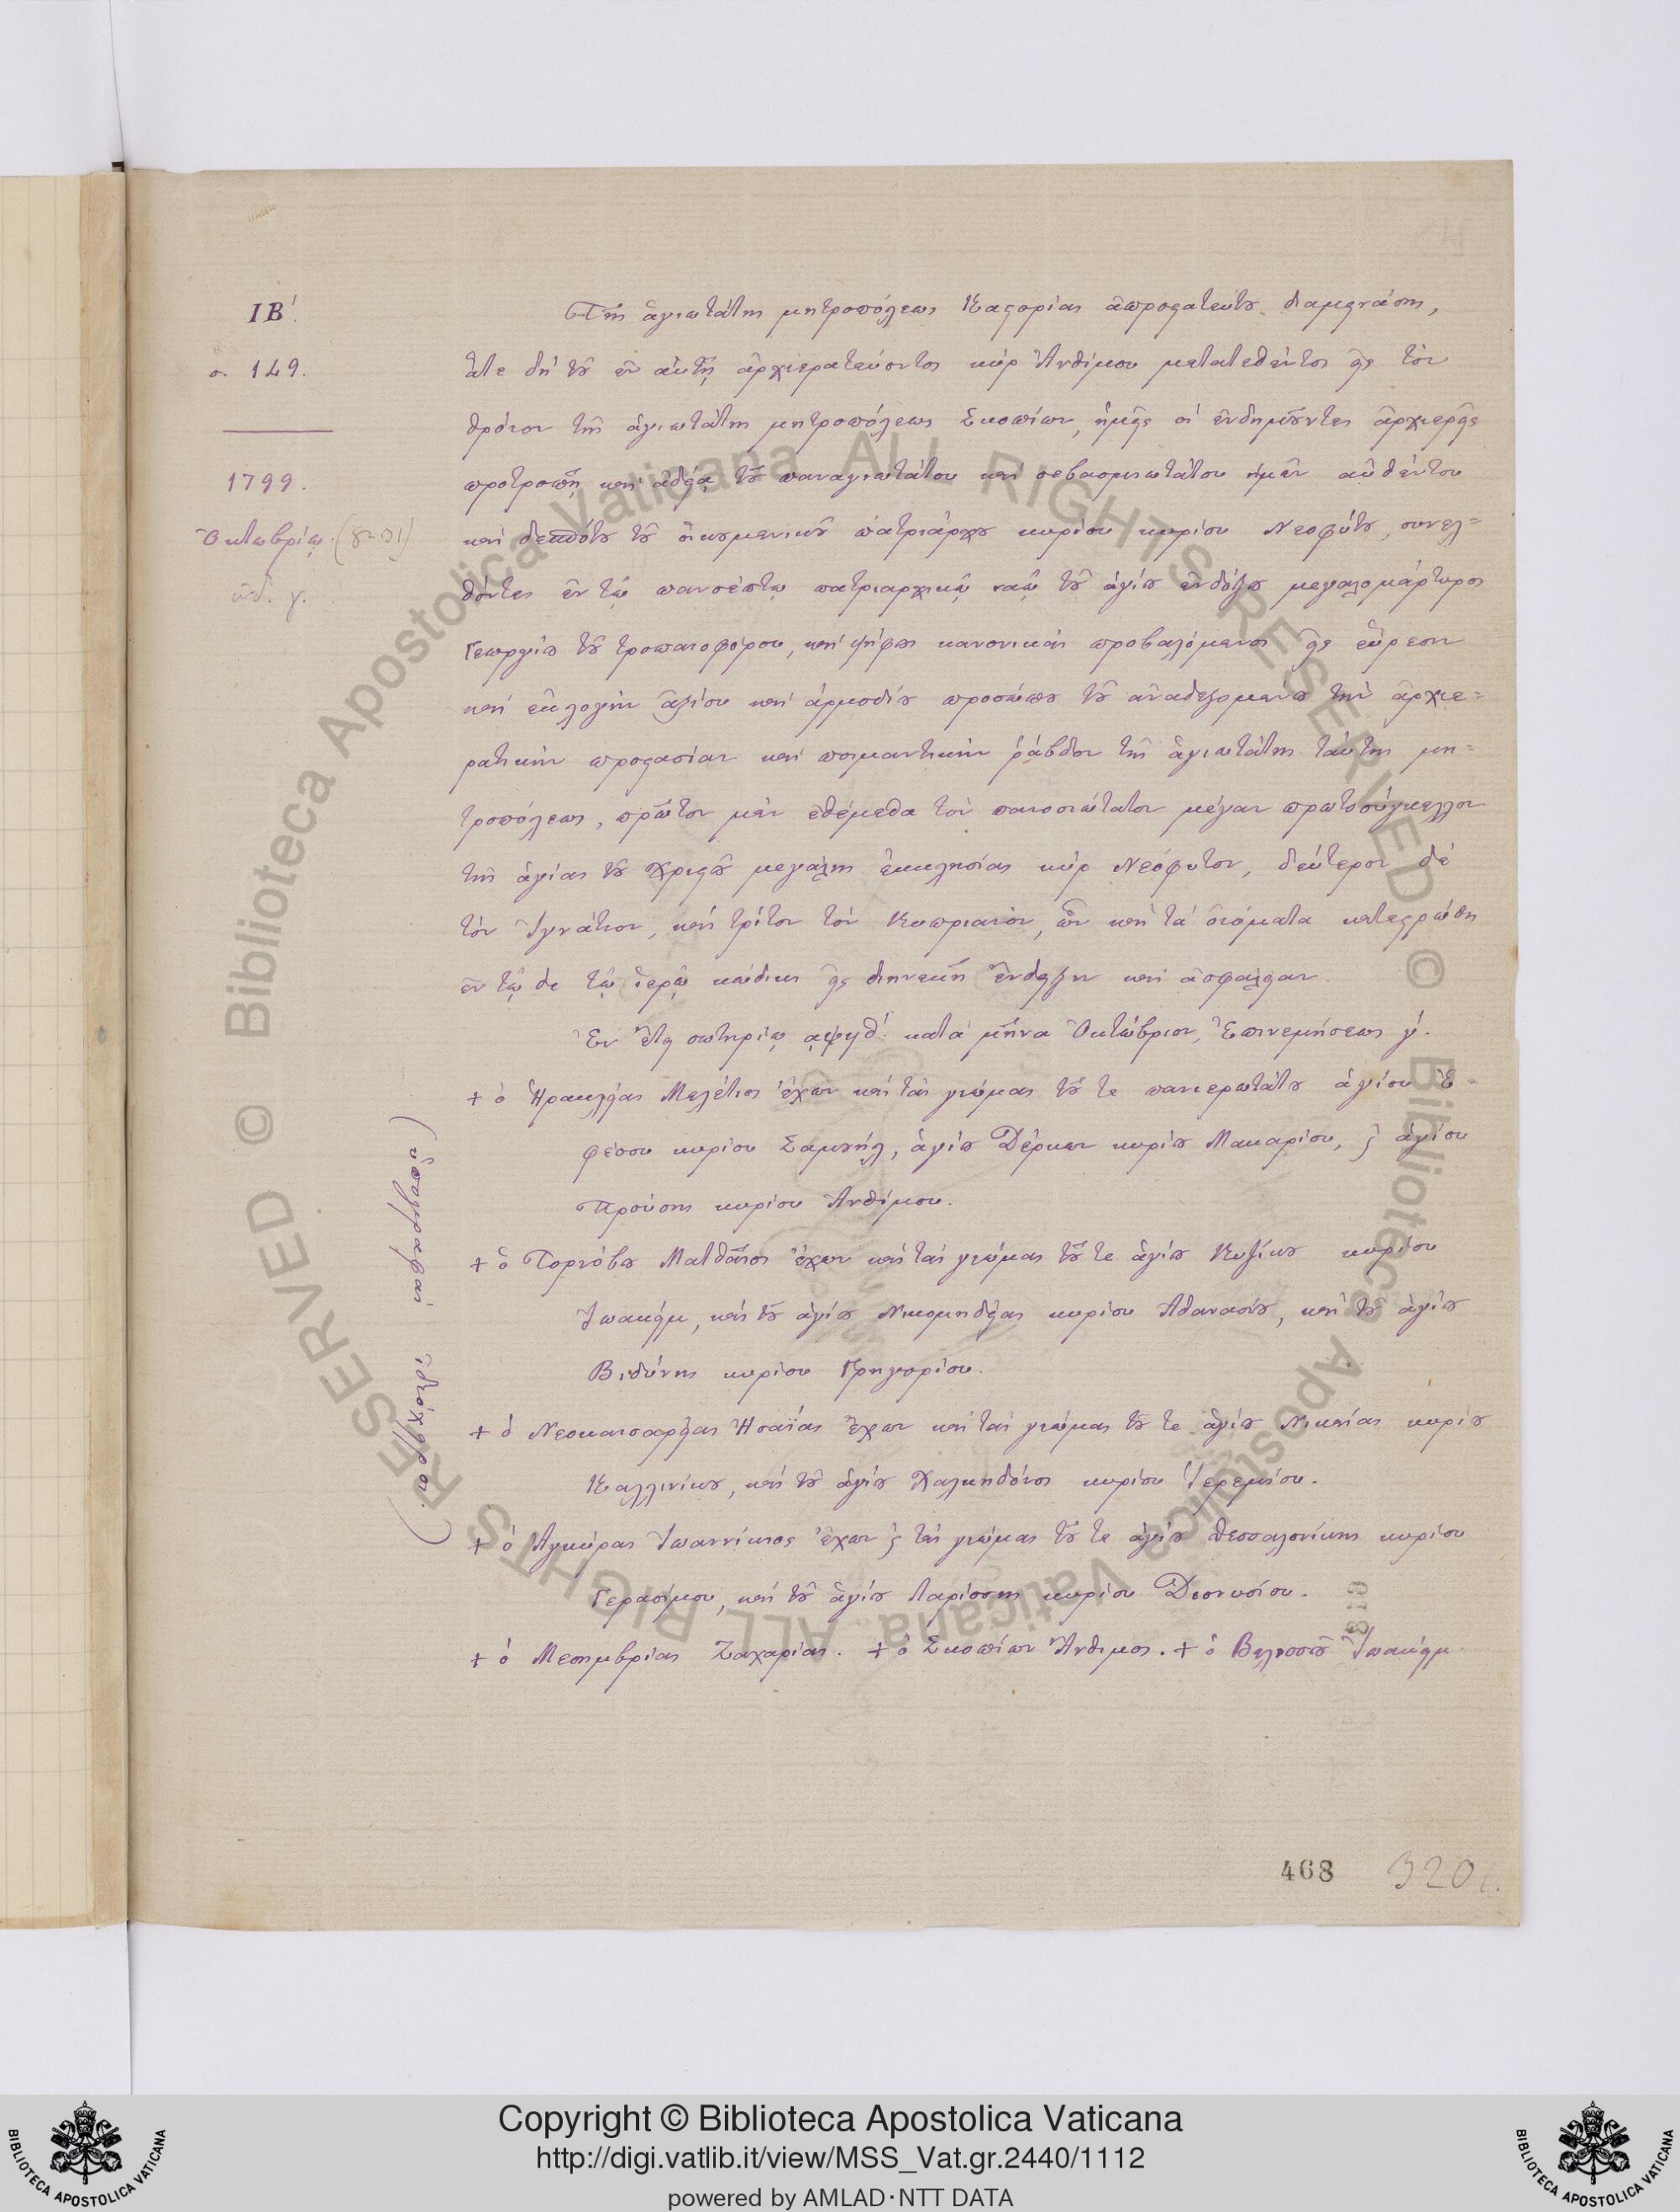 ΙΒ΄.
σ. 149.
1799.
Ὀκτωβρίῳ (8-31)
ἰνδ. γ.
Τῆς ἁγιωτάτης μητροπόλεως Καστορίας ἀπροστατεύτου διαμεινάσης,
ἅτε δὴ τοῦ ἐν αὐτῇ ἀρχιερατεύοντος κὺρ Ἀνθίμου μετατεθέντος εἰς τὸν
θρόνον τῆς ἁγιωτάτης μητροπόλεως Σκοπίων, ἡμεῖς οἱ ἐνδημοῦντες ἀρχιερεῖς
προτροπῇ καὶ ἀδείᾳ τοῦ παναγιωτάτου καὶ σεβασμιωτάτου ἡμῶν αὐθέντου
καὶ δεσπότου τοῦ οἰκουμενικοῦ πατριάρχου κυρίου κυρίου Νεοφύτου, συνελ=
θόντες ἐν τῷ πανσέπτῳ πατριαρχικῷ ναῷ τοῦ ἁγίου ἐνδόξου μεγαλομάρτυρος
Γεωργίου τοῦ τροπαιοφόρου, καὶ ψήφους κανονικὰς προβαλόμενοι εἰς εὕρεσιν
καὶ ἐκλογὴν ἀξίου καὶ ἁρμοδίου προσώπου τοῦ ἀναδεξομένου τὴν ἀρχιε=
ρατικὴν προστασίαν καὶ ποιμαντικὴν ῥάβδον τῆς ἁγιωτάτης ταύτης μη=
τροπόλεως, πρῶτον μὲν ἐθέμεθα τὸν πανοσιώτατον μέγαν πρωτοσύγκελλον
τῆς ἁγίας τοῦ Χριστοῦ μεγάλης ἐκκλησίας κὺρ Νεόφυτον, δεύτερον δὲ
τὸν Ἰγνάτιον, καὶ τρίτον τὸν Κυπριανόν, ὧν καὶ τὰ ὀνόματα κατεστρώθη
ἐν τῷδε τῷ ἱερῷ κώδικι εἰς διηνεκῆ ἔνδειξιν καὶ ἀσφάλειαν.
Ἐν ἔτει σωτηρίῳ αψϟθ΄. κατὰ μῆνα Ὀκτώβριον, Ἐπινεμήσεως γ΄.
+ ὁ Ἡρακλείας Μελέτιος ἔχων καὶ τὰς γνώμας τοῦ τε πανιερωτάτου ἁγίου Ἐ=
φέσου κυρίου Σαμουήλ, ἁγίου Δέρκων κυρίου Μακαρίου, ϗ ἁγίου
Προύσης κυρίου Ἀνθίμου.
+ ὁ Τορνόβου Ματθαῖος ἔχων καὶ τὰς γνώμας τοῦ τε ἁγίου Κυζίκου κυρίου
Ἰωακείμ, καὶ τοῦ ἁγίου Νικομηδείας κυρίου Ἀθανασίου, καὶ τοῦ ἁγίου
Βιδύνης κυρίου Γρηγορίου.
+ ὁ Νεοκαισαρείας Ἡσαΐας ἔχων καὶ τὰς γνώμας τοῦ τε ἁγίου Νικαίας κυρίου
Καλλινίκου, καὶ τοῦ ἁγίου Χαλκηδόνος κυρίου Ἱερεμίου.
+ ὁ Ἀγκύρας Ἰωαννίκιος ἔχων ϗ τὰς γνώμας τοῦ τε ἁγίου Θεσσαλονίκης κυρίου
Γερασίμου, καὶ τοῦ ἁγίου Λαρίσσης κυρίου Διονυσίου.
+ ὁ Μεσημβρίας Ζαχαρίας. + ὁ Σκοπίων Ἄνθιμος. + ὁ Βελεσσοῦ Ἰωακείμ.
468
320
© Biblioteca Apostolica Vaticana ALL RIGHTS RESERVED
© Biblioteca Apostolica Vaticana ALL RIGHTS RESERVED
Copyright © Biblioteca Apostolica Vaticana
http://digi.vatlib.it/view/MSS_Vat.gr.2440/1112
powered by AMLAD·NTT DATA
BIBLIOTECA APOSTOLICA VATICANA
BIBLIOTECA APOSTOLICA VATICANA